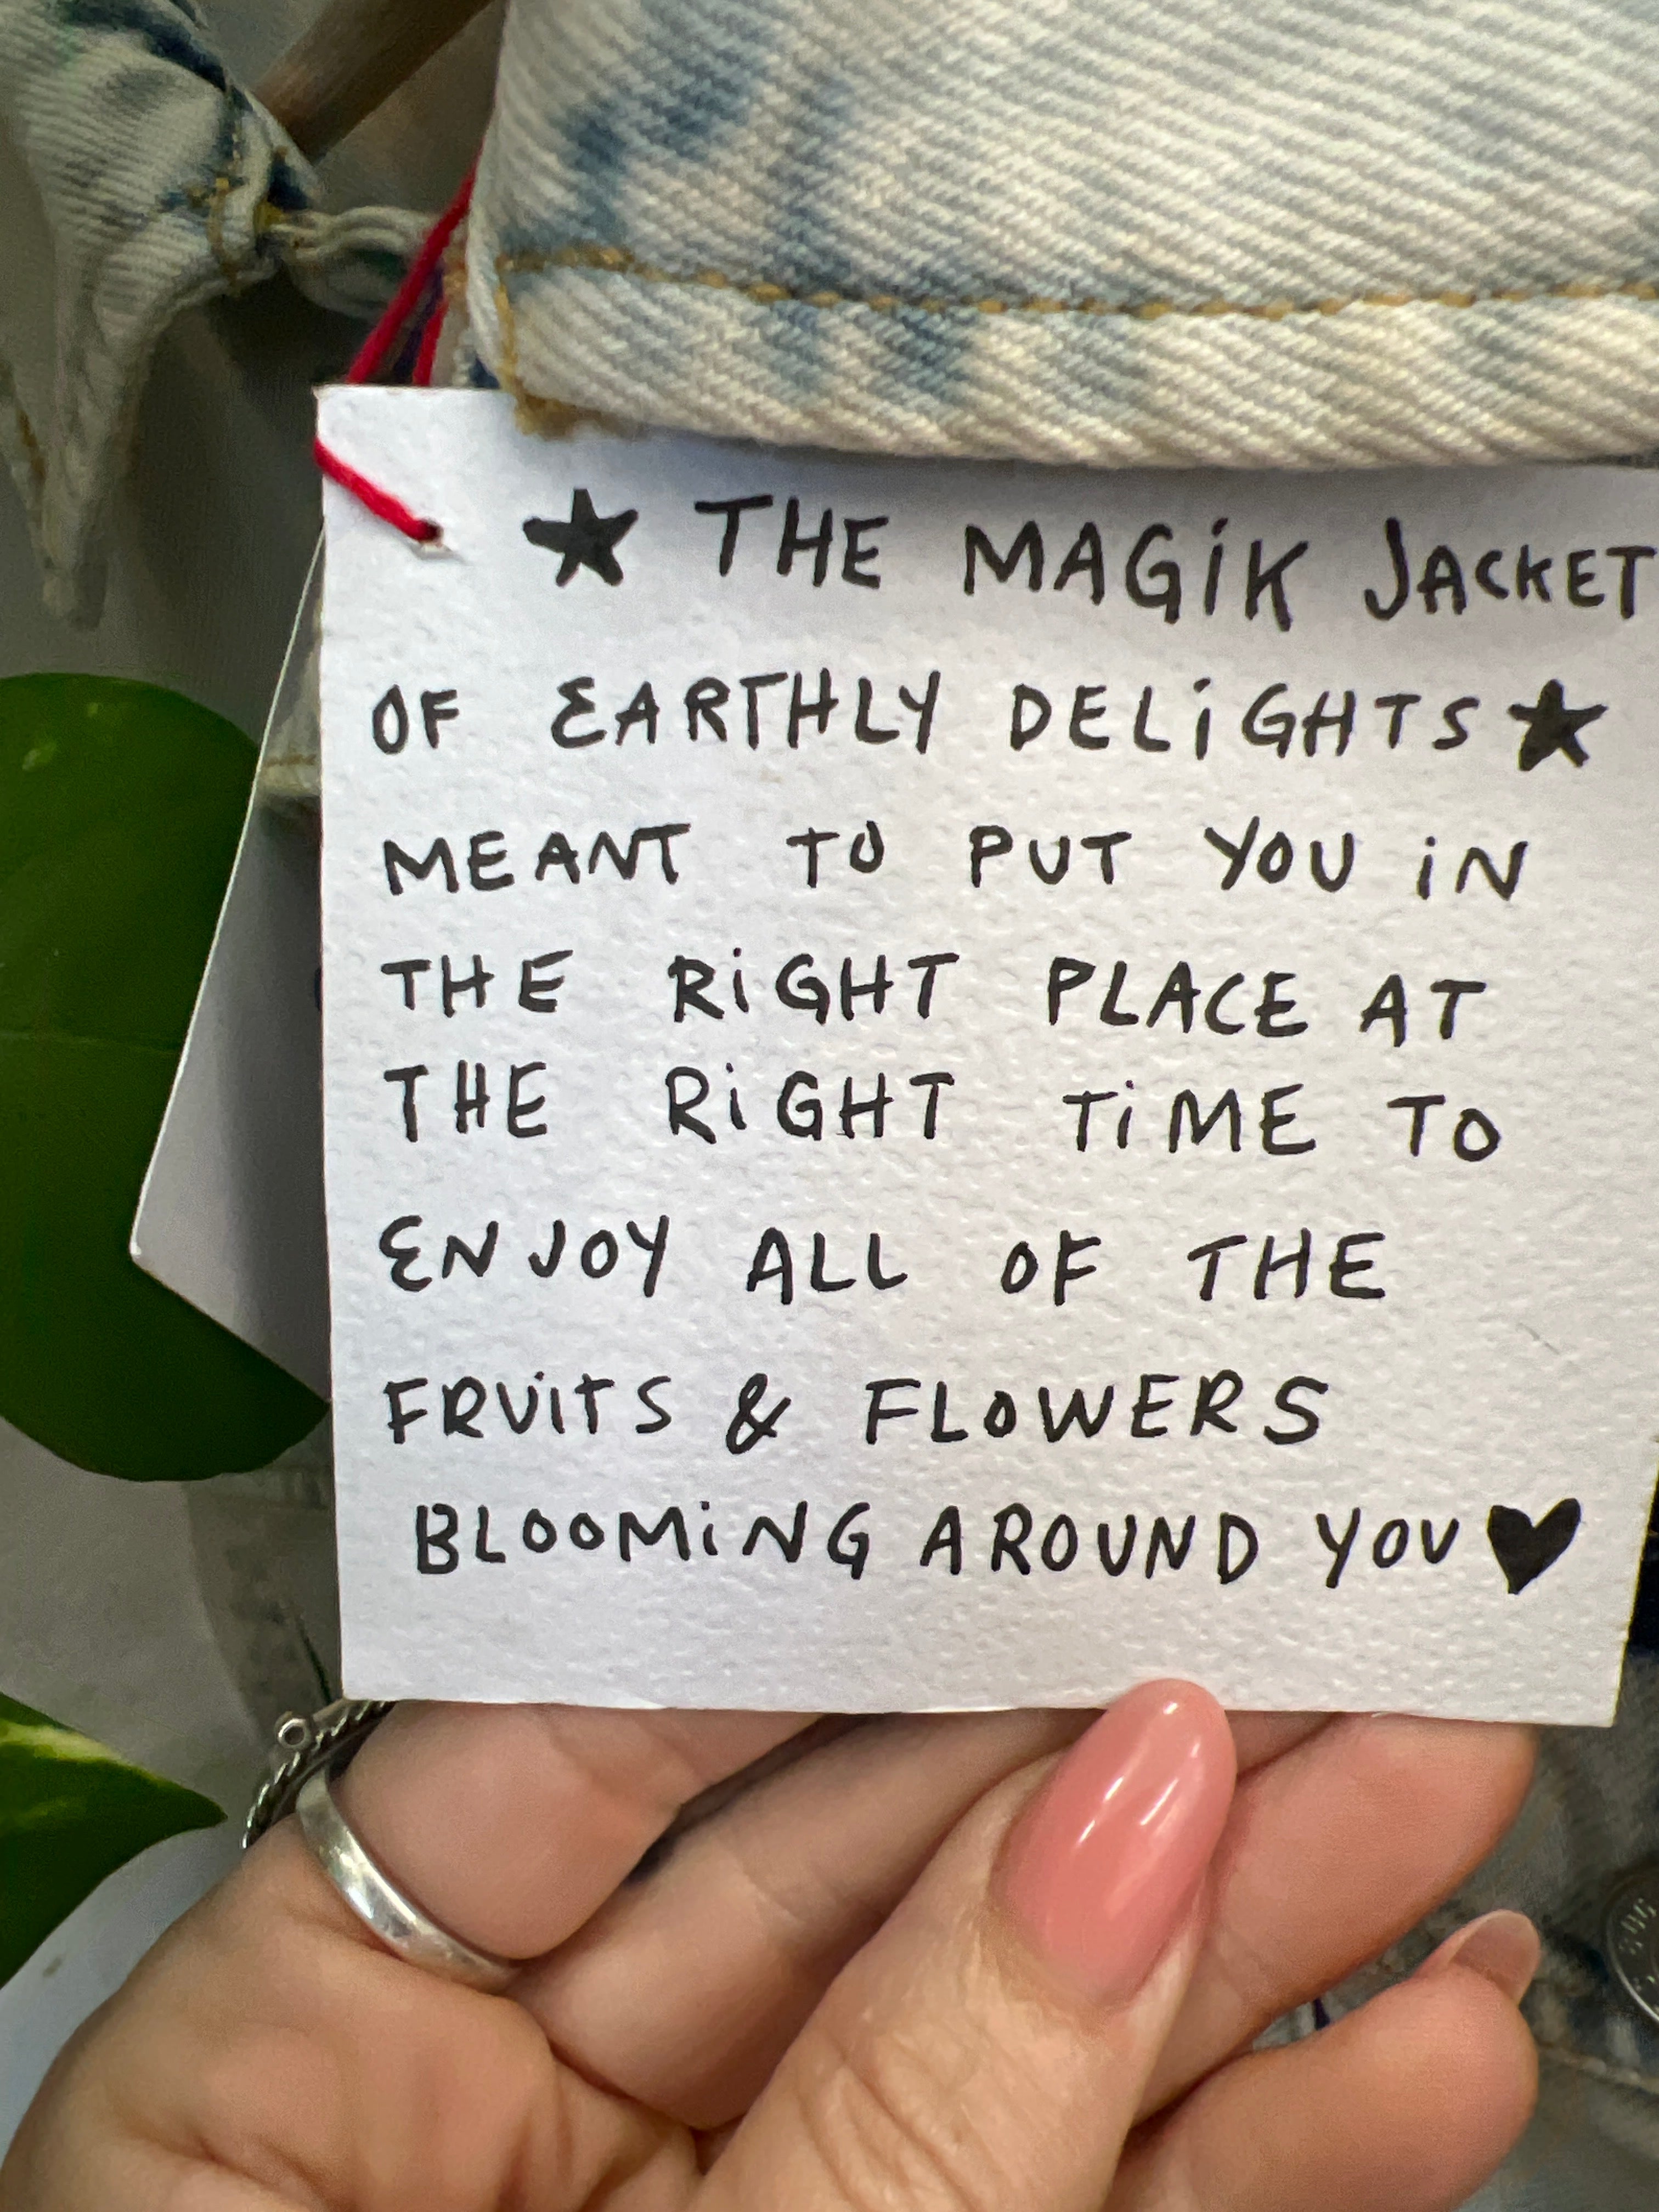 ★ THE MAGiK JACKET
OF EARTHLY DELiGHTS ★
MEANT TO PUT YOU iN
THE RiGHT PLACE AT
THE RiGHT TiME TO
ENJOY ALL OF THE
FRUiTS & FLOWERS
BLOOMiNG AROUND YOU ♥